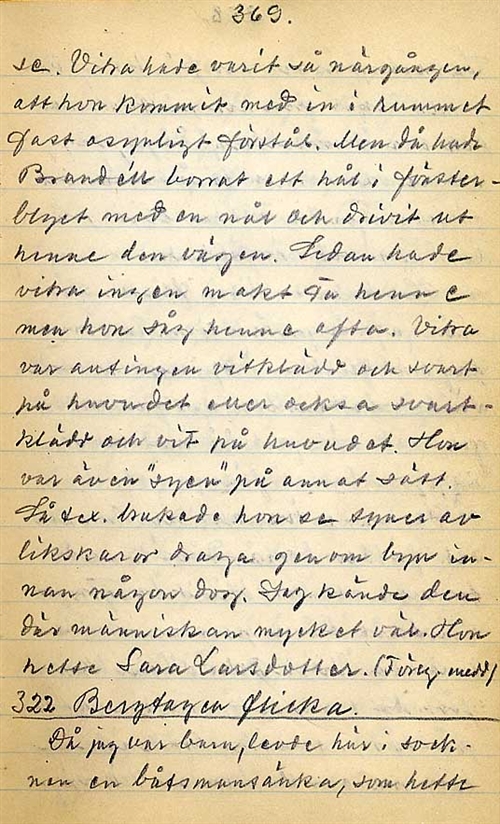 369.
se. Vitra hade varit så närgången,
att hon kommit med in i rummet
fast osynligt förstås. Men då hade
Brandéll borrat ett hål i fönster-
blyet med en nål och drivit ut
henne den vägen. Sedan hade
vitra ingen makt på henne
men hon såg henne ofta. Vitra
var antingen vitklädd och svart
på huvudet eller också svart-
klädd och vit på huvudet. Hon
var även "synen" på annat sätt.
Så t.ex. brukade hon se syner av
likskaror draga genom byn in-
nan någon dog. Jag kände den
där människan mycket väl. Hon
hette Sara Larsdotter. (Föreg. medd)
322 Bergtagen flicka.
Då jag var barn, levde här i sock-
nen en båtsmansänka, som hette